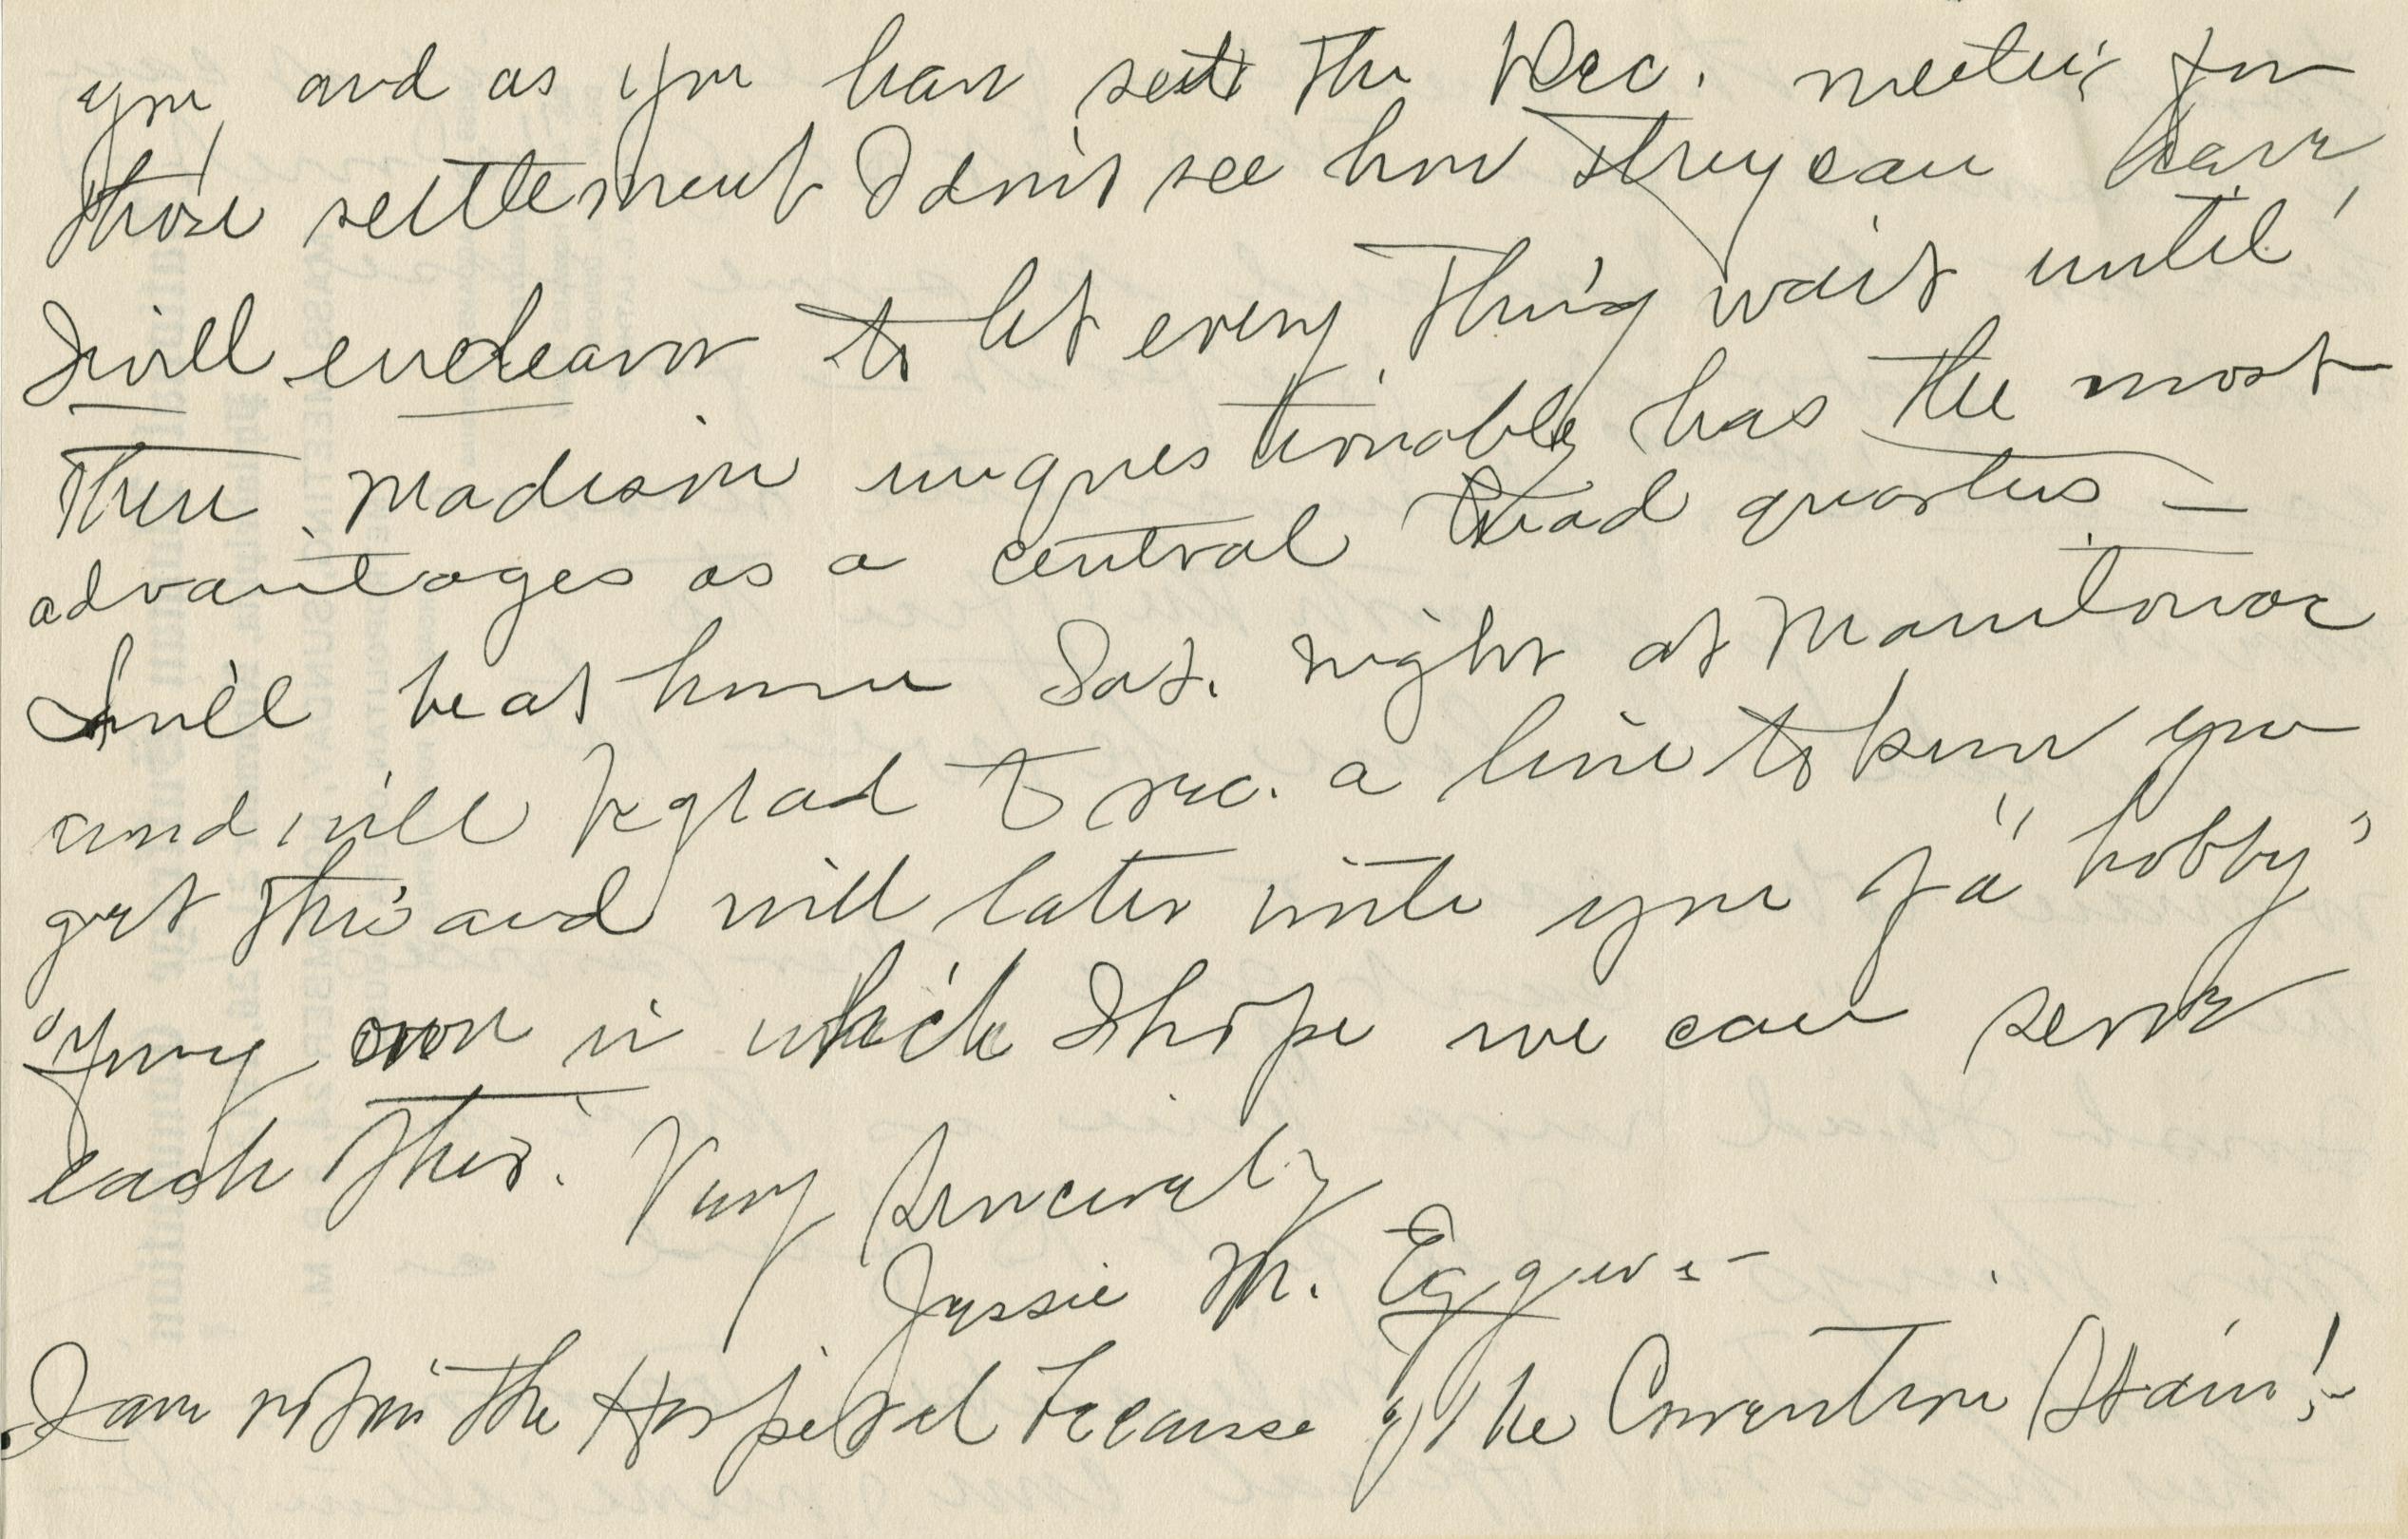 you and as you have set the Dec. meeting for
those settlement I don't see how they can have
I will endeavor to let every thing wait until
then. Madison unquestionably has the most
advantages as a central Head quarters —
I will be at home Sat. night at Manitowoc
and will be glad to rec. a line to know you
get this and will later write you of a "hobby"
of my own in which I hope we can serve
each other. Very Sincerely
Jessie M. Eggers —
I am not in the Hospital because of the Convention Strain! —